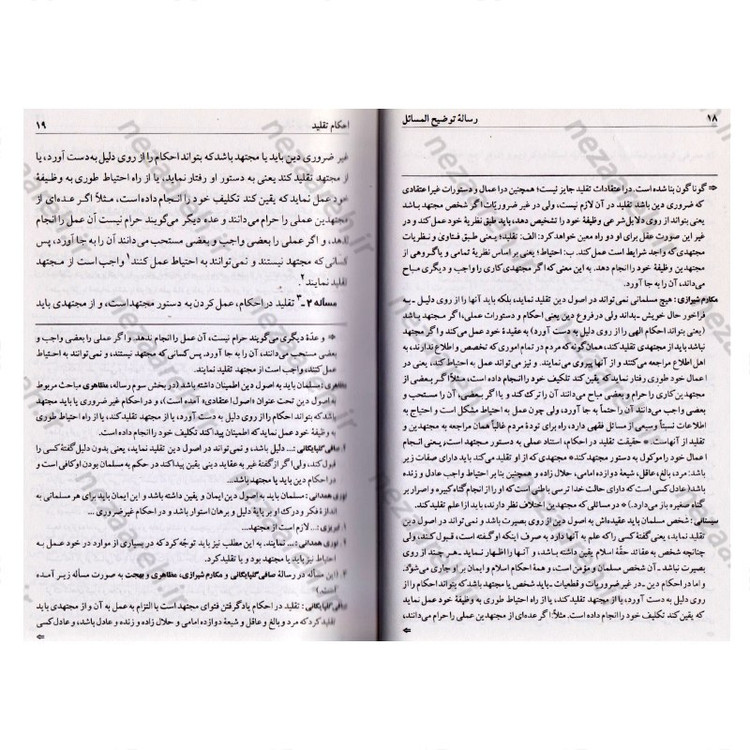 ۱۸
رسالۀ توضیح المسائل
⇦ گوناگون بنا شده است. در اعتقادات تقلید جایز نیست؛ همچنین در اعمال و دستورات غیر اعتقادی
که ضروری دین باشد تقلید در آن لازم نیست، ولی در غیر ضروریّات؛ اگر شخص مجتهد باشد
یعنی بتواند از روی دلایل شرعی وظیفۀ خود را تشخیص دهد، باید طبق نظریۀ خود عمل کند و در
غیر این صورت عقل برای او دو راه معین خواهد کرد: الف: تقلید؛ یعنی طبق فتاوی و نظریات
مجتهدی که واجد شرایط است عمل کند. ب: احتیاط؛ یعنی بر اساس نظریۀ تمامی و یا گروهی از
مجتهدین وظیفۀ خود را انجام دهد. به این معنی که اگر مجتهدی کاری را واجب و دیگری مباح
می‌داند آن را به جا آورد.
مکارم شیرازی: هیچ مسلمانی نمی‌تواند در اصول دین تقلید نماید، بلکه باید آنها را از روی دلیل ـ به
فراخور حال خویش ـ بداند ولی در فروع دین یعنی احکام و دستورات عملی، اگر مجتهد باشد
(یعنی بتواند احکام الهی را از روی دلیل به دست آورد) به عقیدۀ خود عمل می‌کند و اگر مجتهد
نباشد باید از مجتهدی تقلید کند، همان‌گونه که مردم در تمام اموری که تخصص و اطلاع ندارند، به
اهل اطلاع مراجعه می‌کنند و از آنها پیروی می‌نمایند. و نیز می‌تواند عمل به احتیاط کند، یعنی در
اعمال خود طوری رفتار نماید که یقین کند تکلیف خود را انجام داده است، مثلاً اگر بعضی از
مجتهدین کاری را حرام و بعضی مباح می‌دانند آن را ترک کند و یا اگر بعضی، آن را مستحب و
بعضی واجب می‌دانند آن را حتماً به جا آورد، ولی چون عمل به احتیاط مشکل است و احتیاج به
اطلاعات نسبتاً وسیعی از مسائل فقهی دارد، راه برای تودۀ مردم غالباً همان مراجعه به مجتهدین و
تقلید از آنهاست. * حقیقت تقلید در احکام، استناد عملی به دستور مجتهد است، یعنی انجام
اعمال خود را موکول به دستور مجتهد کند * مجتهدی که از او تقلید می‌کند باید دارای صفات زیر
باشد: مرد، بالغ، عاقل، شیعۀ دوازده امامی، حلال زاده و همچنین بنا بر احتیاط واجب عادل و زنده
باشد (عادل کسی است که دارای حالت خدا ترسی باطنی است که او را از انجام گناه کبیره و اصرار بر
گناه صغیره باز می‌دارد.) * در مسائلی که مجتهدین اختلاف نظر دارند، باید از اعلم تقلید کند.
سیستانی: شخص مسلمان باید عقیده‌اش به اصول دین از روی بصیرت باشد و نمی‌تواند در اصول دین
تقلید نماید، یعنی گفتۀ کسی را که علم به آنها دارد به صرف اینکه او گفته است، قبول کند، ولی
چنانچه شخص به عقائد حقّۀ اسلام یقین داشته باشد، و آنها را اظهار نماید ـ هر چند از روی
بصیرت نباشد ـ آن شخص مسلمان و مؤمن است، و همۀ احکام اسلام و ایمان بر او جاری می‌شود.
و اما در احکام دین ـ در غیر ضروریات و قطعیات ـ باید شخص یا مجتهد باشد که بتواند احکام را از
روی دلیل به دست آورد، یا از مجتهد تقلید کند، یا از راه احتیاط طوری به وظیفۀ خود عمل نماید
که یقین کند تکلیف خود را انجام داده است. مثلاً: اگر عده‌ای از مجتهدین عملی را حرام می‌دانند،
⇦
احکام تقلید
۱۹
غیر ضروری دین باید یا مجتهد باشد که بتواند احکام را از روی دلیل به دست آورد، یا
از مجتهد تقلید کند یعنی به دستور او رفتار نماید، یا از راه احتیاط طوری به وظیفۀ
خود عمل نماید که یقین کند تکلیف خود را انجام داده است، مـثلاً اگـر عـده‌ای از
مجتهدین عملی را حرام می‌دانند و عده دیگر می‌گویند حرام نیست آن عمل را انجام
ندهد، و اگر عملی را بعضی واجب و بعضی مستحب می‌دانند آن را به جا آورد، پس
کسانی که مجتهد نیستند و نمی‌توانند به احتیاط عمل کنند۱ واجب است از مجتهد
تقلید نمایند۲.
مسأله ۲ـ۳ تقلید در احکام، عمل کردن به دستور مجتهد است، و از مجتهدی باید
⇦ و عدّۀ دیگری می‌گویند حرام نیست، آن عمل را انجام ندهد. و اگر عملی را بعضی واجب و
بعضی مستحب می‌دانند، آن را به جا آورد. پس کسانی که مجتهد نیستند، و نمی‌توانند به احتیاط
عمل کنند، واجب است از مجتهد تقلید نمایند.
مظاهری: مسلمان باید به اصول دین اطمینان داشته باشد (در بخش سوم رساله، مظاهری مباحث مربوط
به اصول دین تحت عنوان «اصول اعتقادی» آمده است)، و در احکام غیر ضروری یا باید مجتهد
باشد که بتواند احکام را از روی دلیل به دست آورد، یا از مجتهد تقلید کند، یا از راه احتیاط طوری
به وظیفۀ خود عمل نماید که اطمینان پیدا کند تکلیف خود را انجام داده است.
۱. صافی گلپایگانی: ... دلیل باشد، و نمی‌تواند در اصول دین تقلید نماید، یعنی بدون دلیل گفتۀ کسی را
قبول کند، ولی اگر از گفتۀ غیر به عقاید دینی یقین پیدا کند در حکم به مسلمان بودن او کافی است و
در احکام دین باید یا مجتهد باشد...
نوری همدانی: مسلمان باید به اصول دین ایمان و یقین داشته باشد و این ایمان باید برای هر مسلمانی به
اندازۀ فکر و درک او بر پایۀ دلیل و برهان استوار باشد و در احکام غیر ضروری ...
۱. تبریزی: ... لازم است از مجتهد...
۲. نوری همدانی: ... نمایند. به این مطلب نیز باید توجّه کرد که در بسیاری از موارد در خود عمل به
احتیاط نیز باید یا مجتهد بود و یا تقلید کرد.
۳. [این مسأله در رسالۀ صافی گلپایگانی و مکارم شیرازی، مظاهری و بهجت به صورت مسألۀ زیر آمده
است:]
صافی گلپایگانی: تقلید در احکام یادگرفتن فتوای مجتهد است با التزام به عمل به آن و از مجتهدی باید
تقلید کرد که مرد و بالغ و عاقل و شیعۀ دوازده امامی و حلال زاده و زنده و عادل باشد، و عادل کسی
⇦